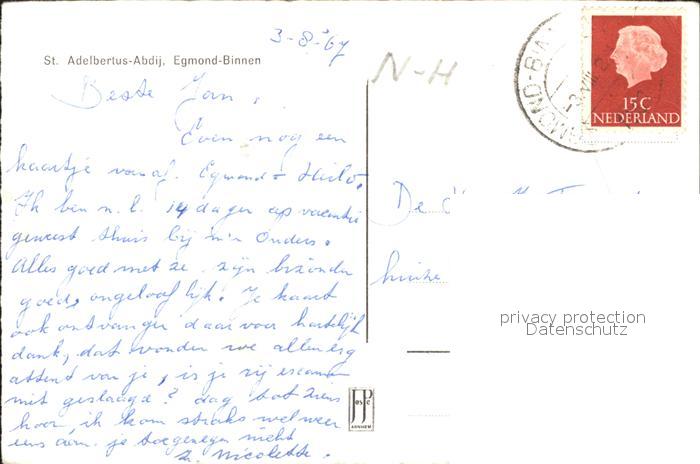 3-8-67
St. Adelbertus-Abdij, Egmond-Binnen
N-H
Beste Jan,
Even nog een
kaartje vanaf. Egmond - Heilo.
Ik ben n.l. 14 dagen op vacantie
geweest thuis bij m'n Ouders.
Alles goed met ze zijn bizonder
goed, ongelooflijk. Je kaart
ook ontvangen daar voor hartelijk
dank, dat vonden we allen erg
attent van je, is je rij examen
mit geslaagd? dag tot ziens
hoor, ik kom straks wel weer
eens aan. je toegenegen nicht
Zr. Nicolette.
15 C
NEDERLAND
De
huize
privacy protection
Datenschutz
ARNHEM